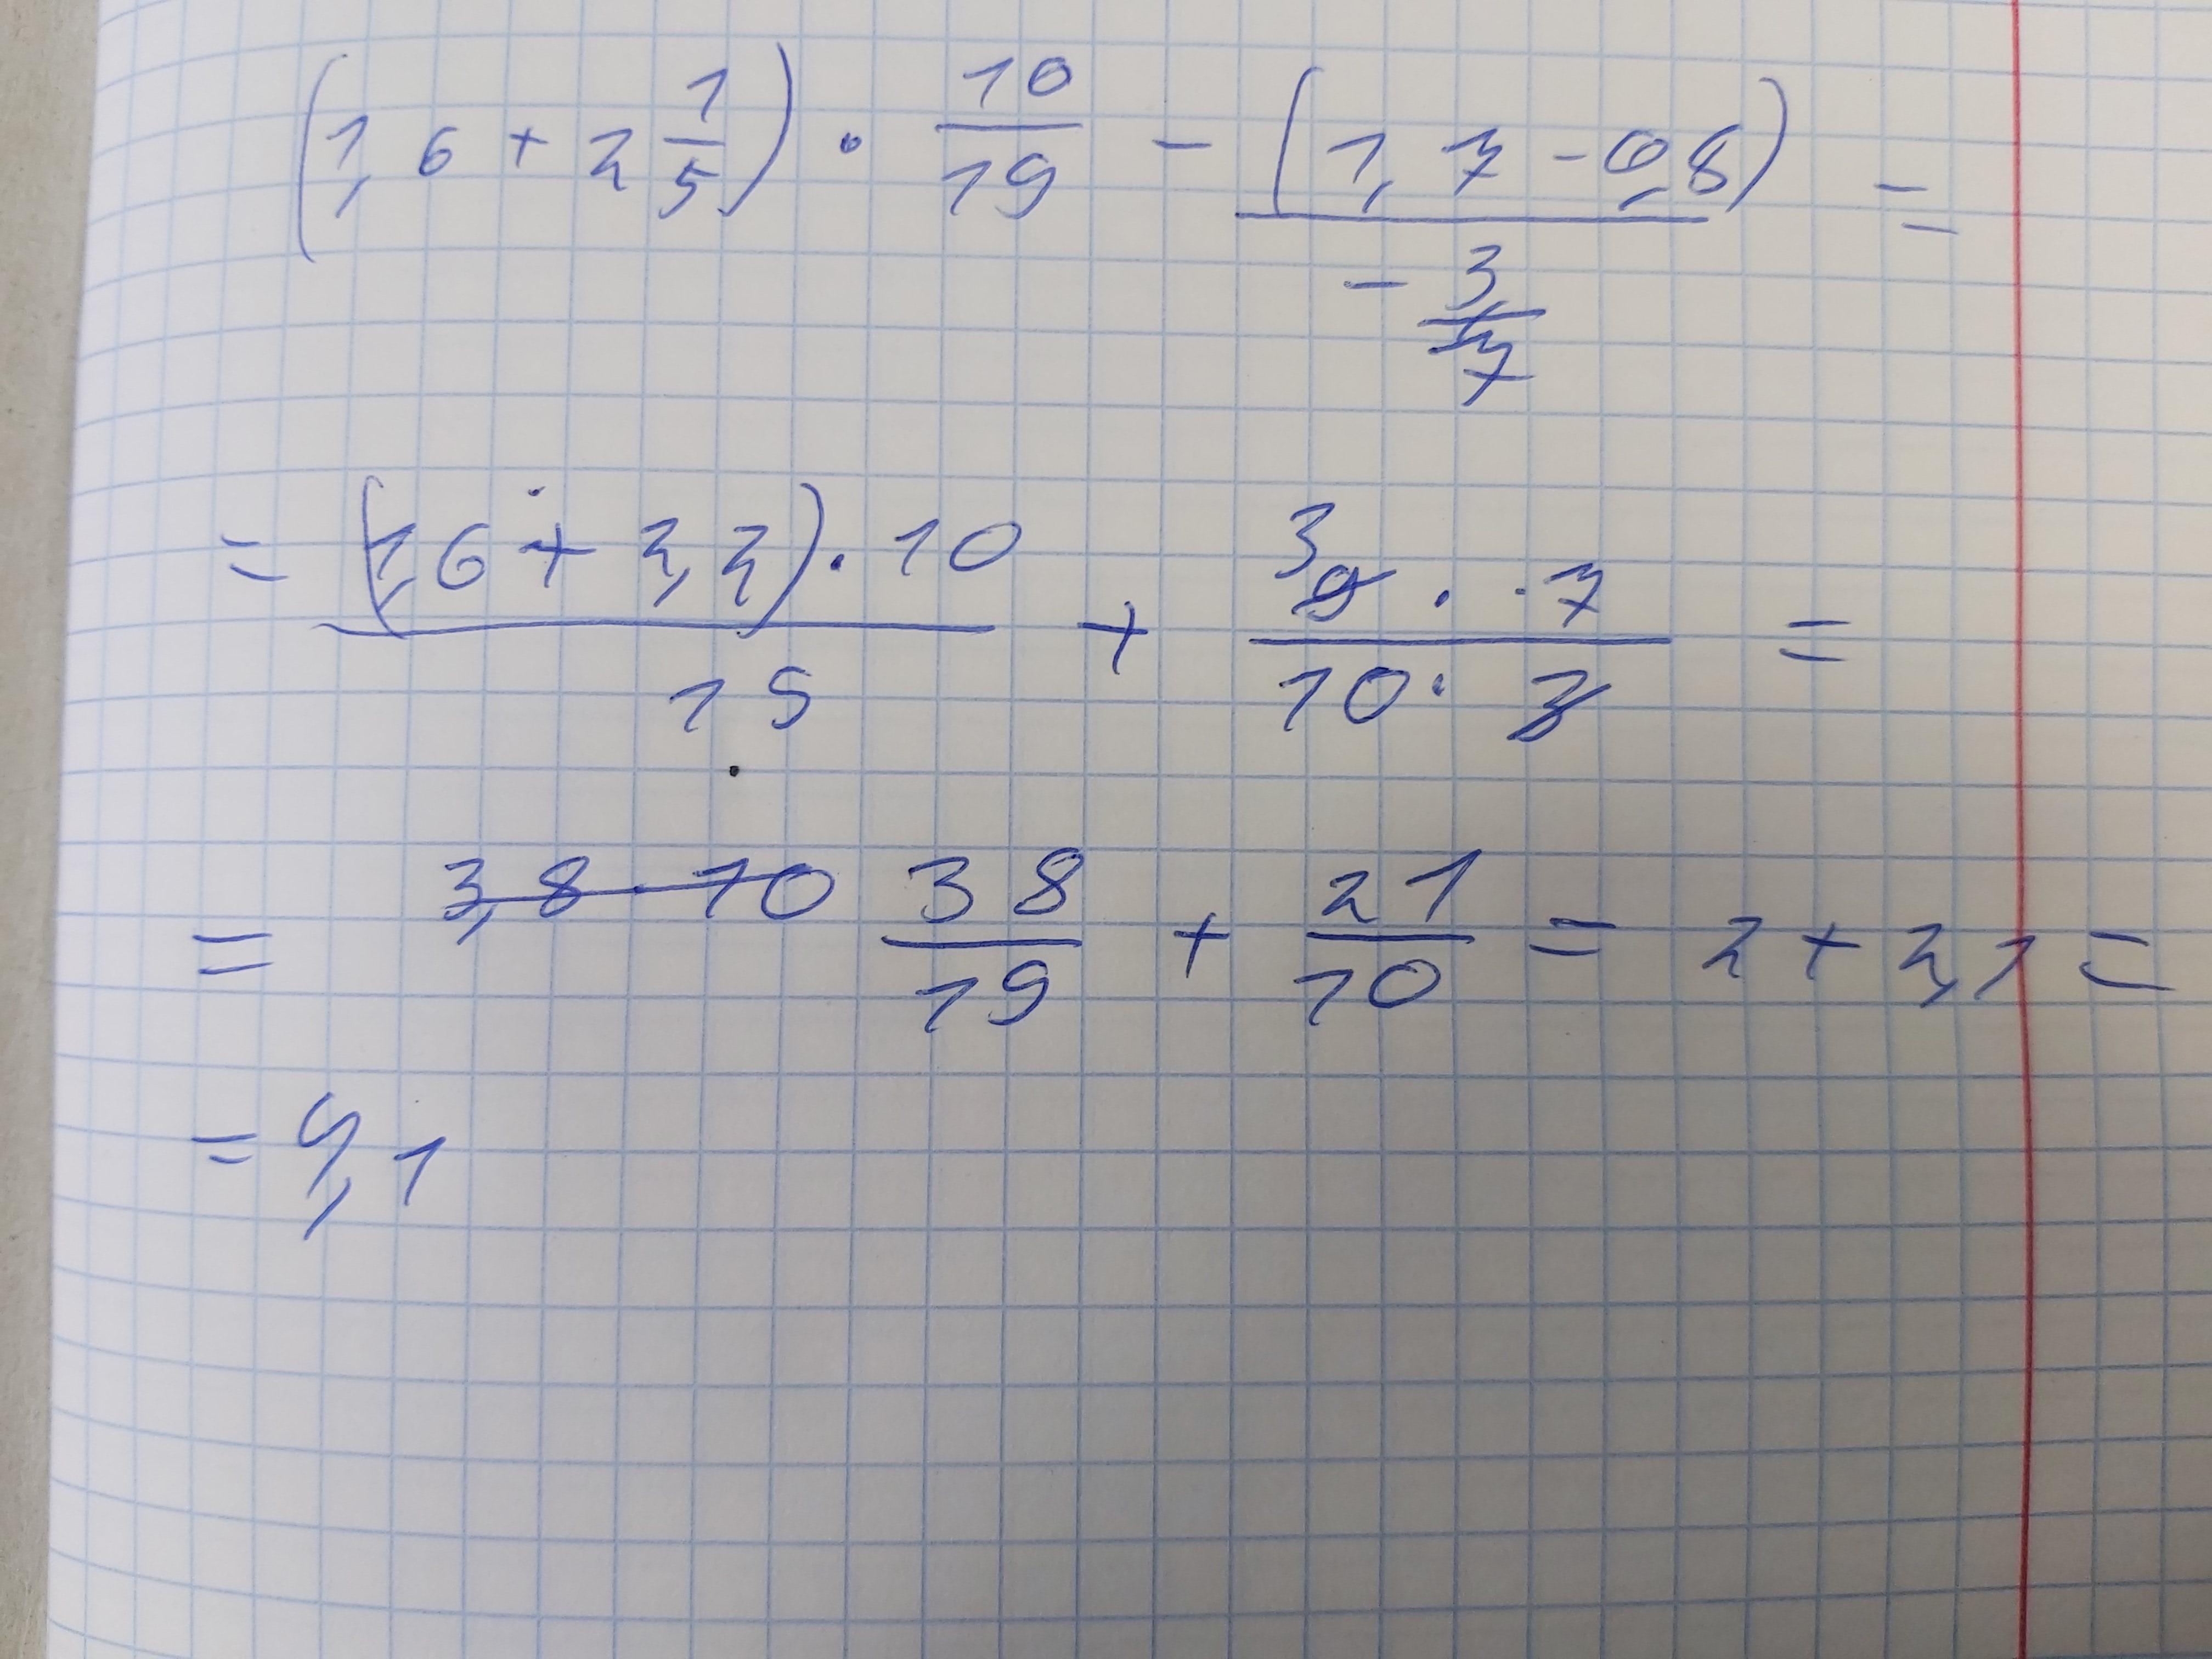 (1,6 + 2 1/5) · 10/19 - (1,7 - 0,8) / (- 3/7) =
= (1,6 + 2,2) · 10 / 19 + 3 9 · 7 / 10 · 3 =
= 3,8 · 10 38/19 + 21/10 = 2 + 2,1 =
= 4,1